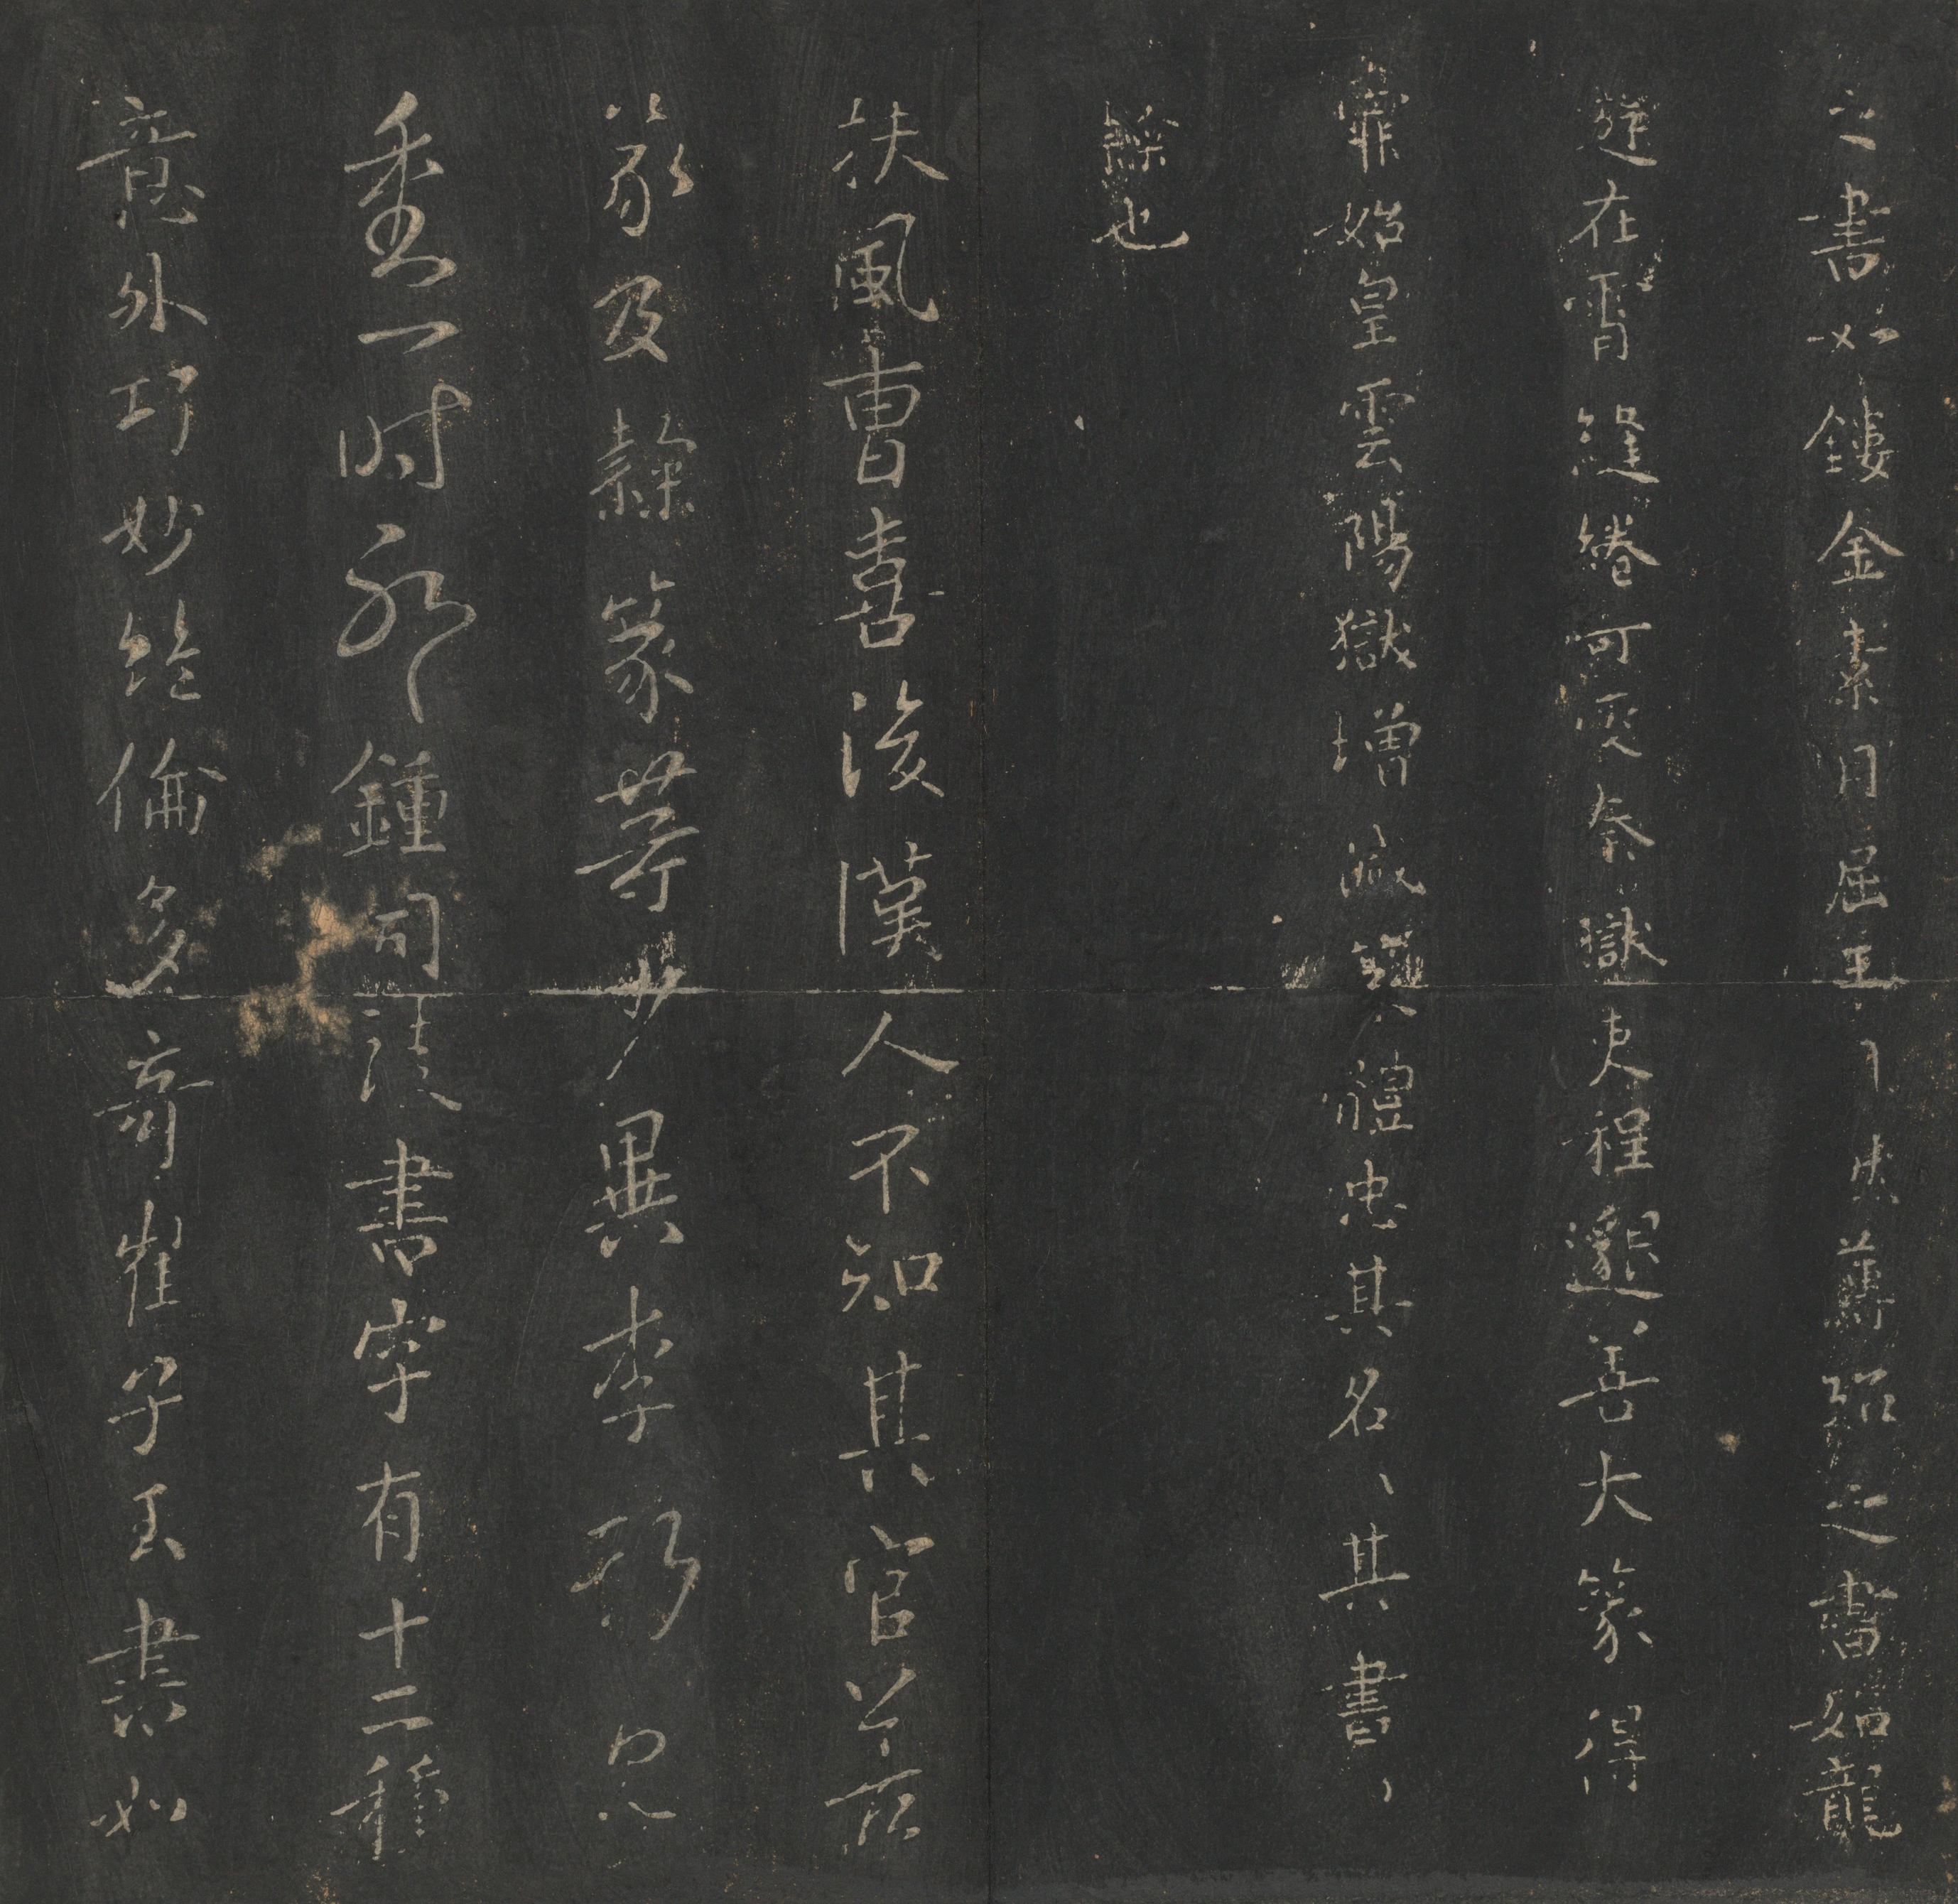 之書如鏤金素月屈玉自照薄紹之書如龍
遊在霄繾綣可愛秦獄吏程邈善大篆得
罪始皇雲陽獄增減篆體忠其名其書
隸也
扶風曹喜後漢人不知其官善
篆及隸篆等少異李斯見
重一時永鍾司徒書字有十二種
意外巧妙絕倫多奇崔子玉書如